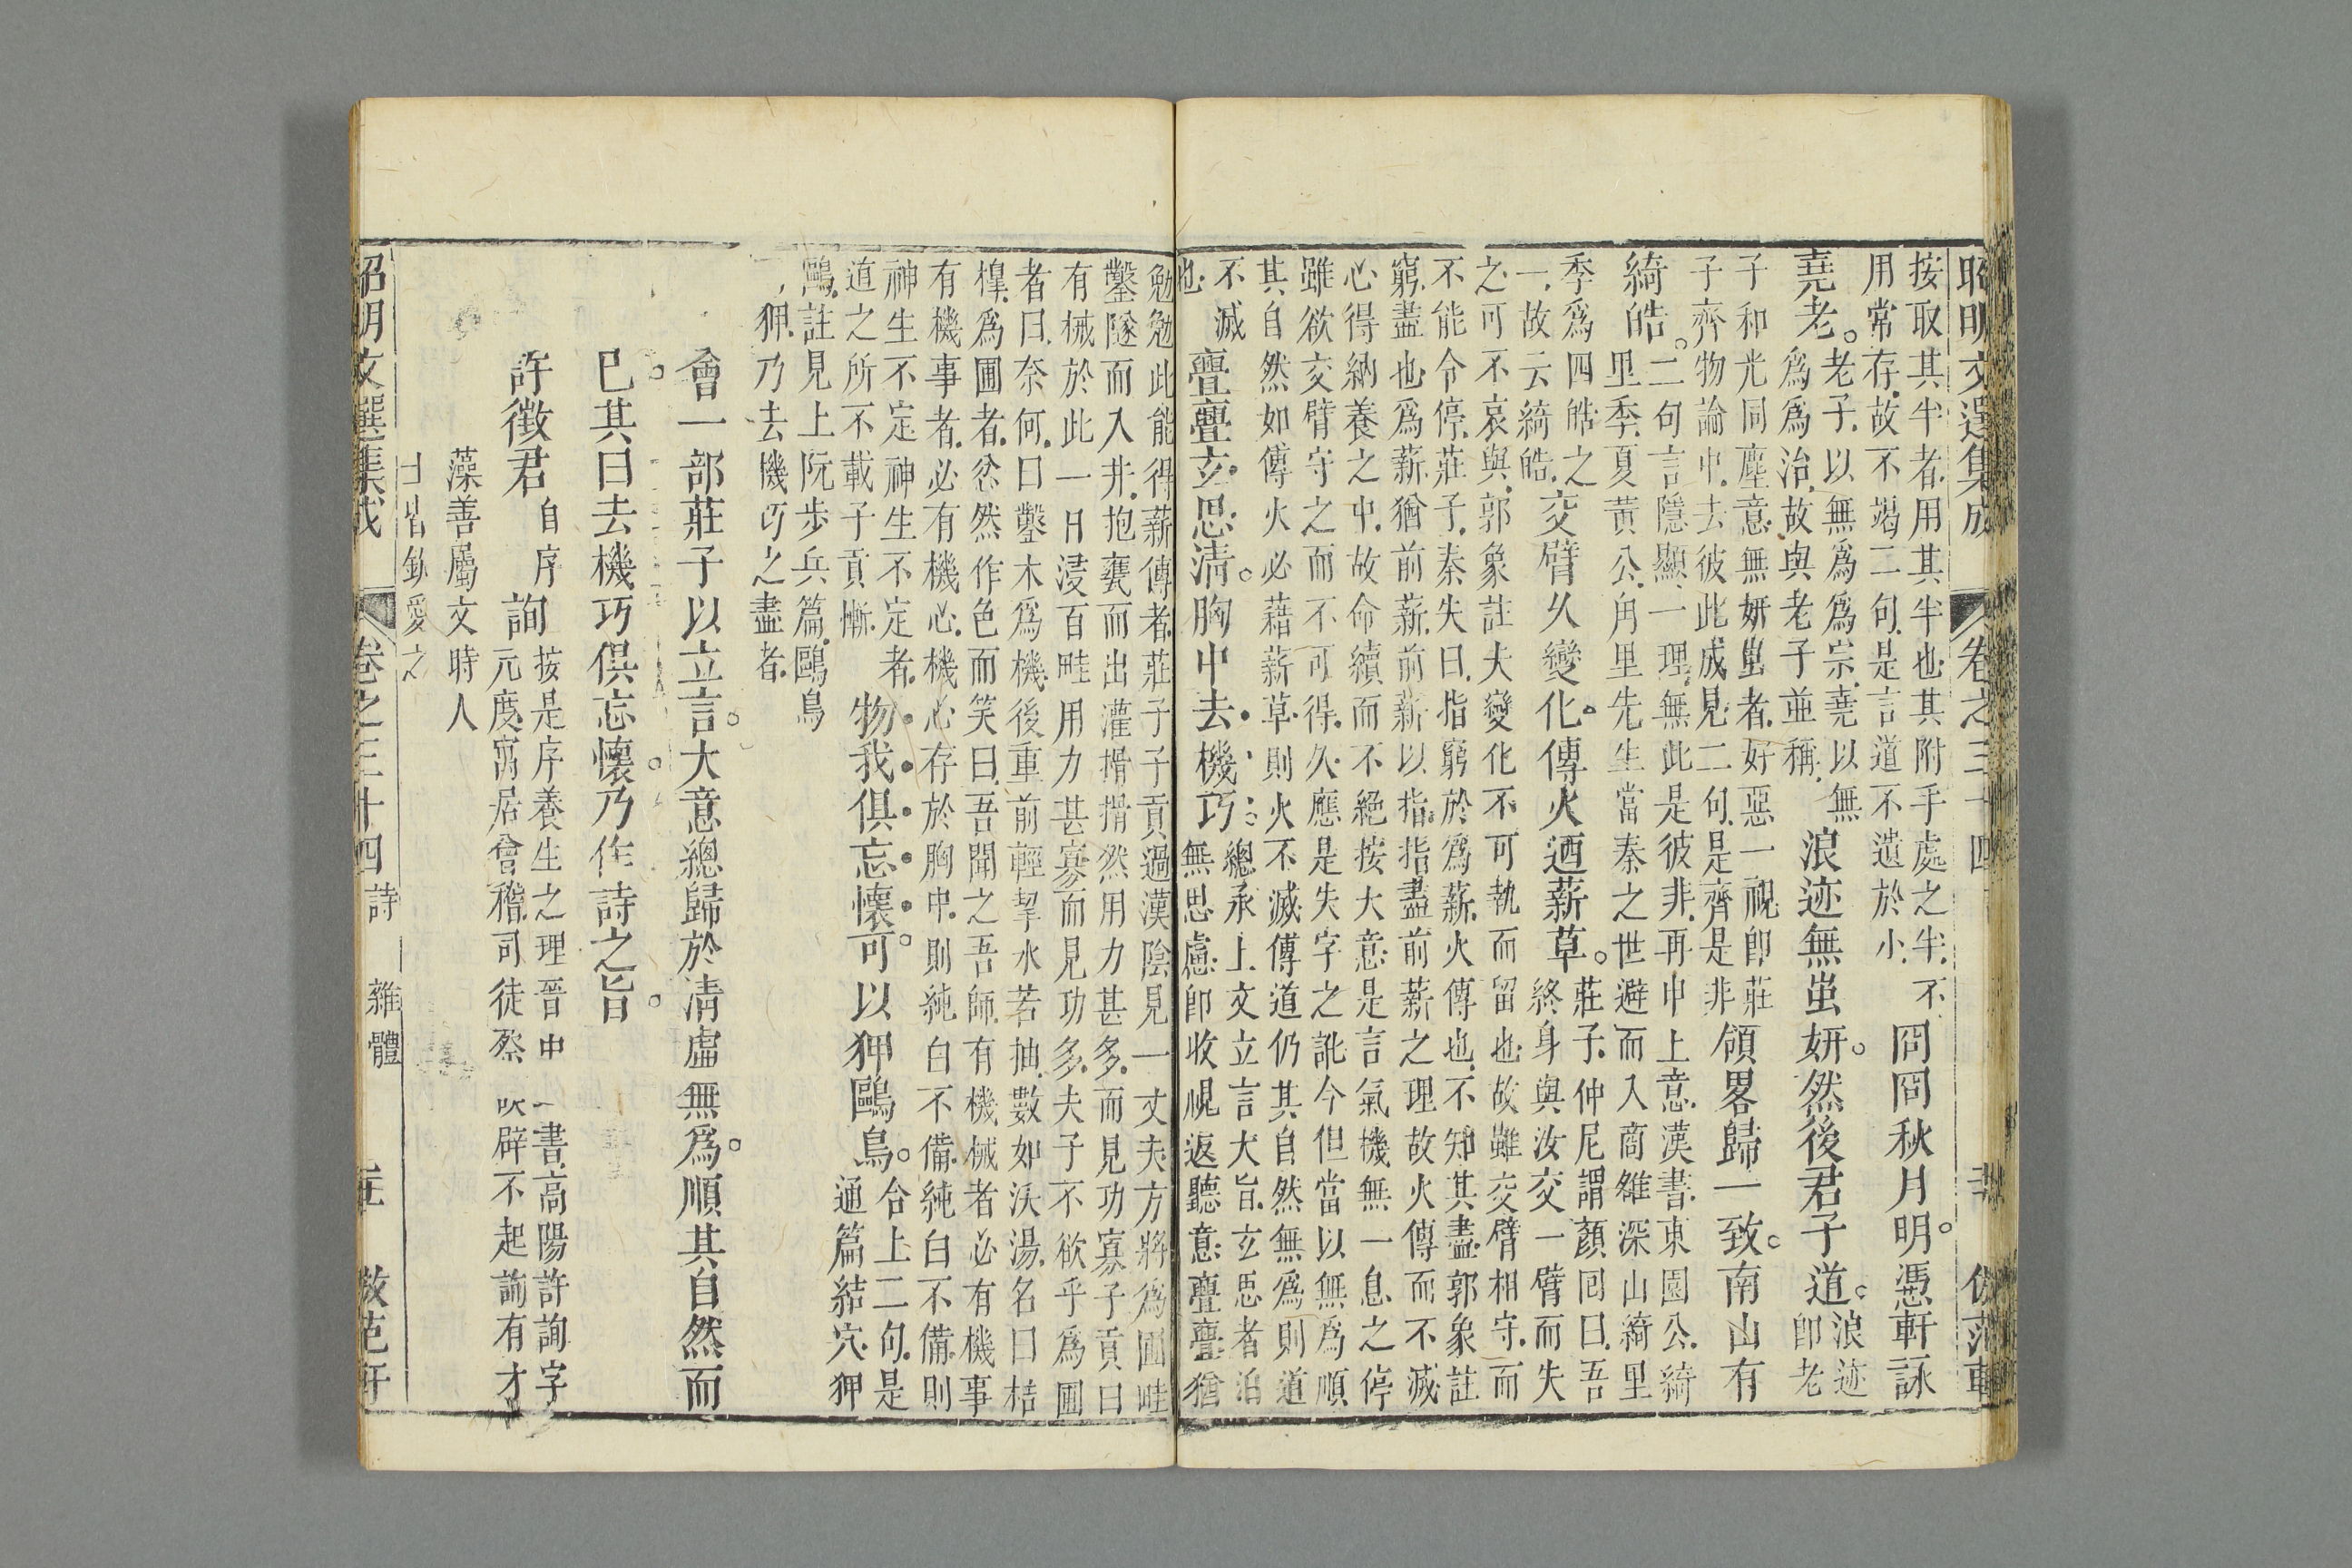 昭明文選集成 卷之三十四 倣范軒
按取其半者用其半也其附手處之半不
用常存故不竭二句是言道不遺於小
冏冏秋月明憑軒詠
堯老
老子以無爲爲宗堯以無
爲爲治故與老子並稱
浪迹無蚩妍然後君子道
浪迹
卽老
子和光同塵意無妍蚩者好惡一視卽莊
子齊物論中去彼此成見二句是齊是非
領畧歸一致南山有
綺皓
二句言隱顯一理無此是彼非再申上意漢書東園公綺
里季夏黃公角里先生當秦之世避而入商雒深山綺里
季爲四皓之
一故云綺皓
交臂久變化傳火迺薪草
莊子仲尼謂顏囘曰吾
終身與汝交一臂而失
之可不哀與郭象註夫變化不可執而留也故雖交臂相守而
不能令停莊子秦失曰指窮於爲薪火傳也不知其盡郭象註
窮盡也爲薪猶前薪前薪以指指盡前薪之理故火傳而不滅
心得納養之中故命續而不絕按大意是言氣機無一息之停
雖欲交臂守之而不可得久應是失字之訛今但當以無爲順
其自然如傳火必藉薪草則火不滅傳道仍其自然無爲則道
不滅
也
亹亹玄思清胸中去機巧
總承上文立言大旨玄思者泊
無思慮卽收視返聽意亹亹猶
勉勉此能得薪傳者莊子子貢過漢陰見一丈夫方將爲圃畦
鑿隧而入井抱甕而出灌搰搰然用力甚多而見功寡子貢曰
有械於此一日浸百畦用力甚寡而見功多夫子不欲乎爲圃
者曰奈何曰鑿木爲機後重前輕挈水若抽數如沃湯名曰桔
橰爲圃者忿然作色而笑曰吾聞之吾師有機械者必有機事
有機事者必有機心機心存於胸中則純白不備純白不備則
神生不定神生不定者
道之所不載子貢慚
物我俱忘懷可以狎鷗鳥
合上二句是
通篇結穴狎
鷗註見上阮步兵篇鷗鳥
可狎乃去機巧之盡者
會一部莊子以立言大意總歸於清虛無爲順其自然而
已其曰去機巧俱忘懷乃作詩之旨
許徵君
自序
詢
按是序養生之理晉中興書高陽許詢字
元度寓居會稽司徒蔡謨辟不起詢有才
藻善屬文時人
士皆欽愛之
昭明文選集成 卷之三十四 詩 雜體 倣范軒